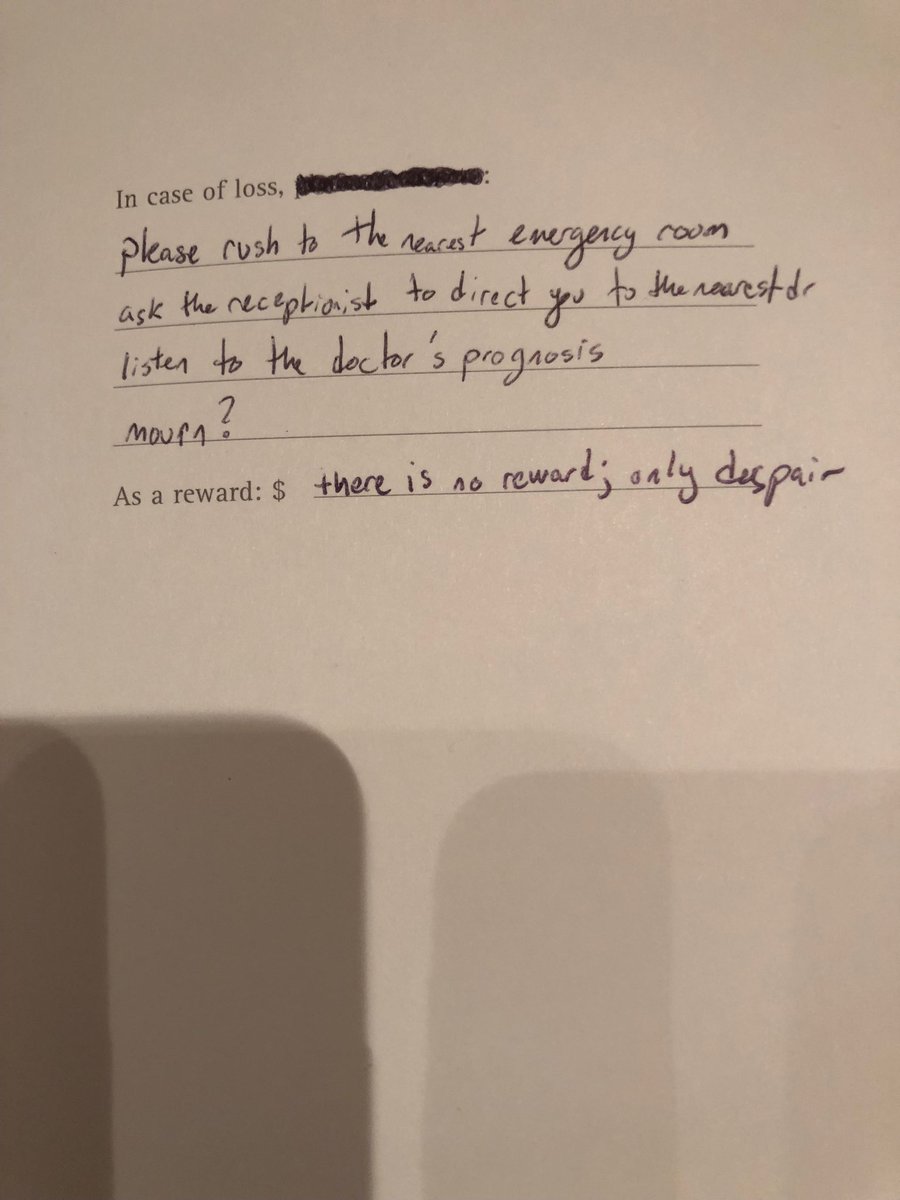 In case of loss, :
please rush to the nearest emergency room
ask the receptionist to direct you to the nearest dr
listen to the doctor's prognosis
mourn?
As a reward: $ there is no reward; only despair